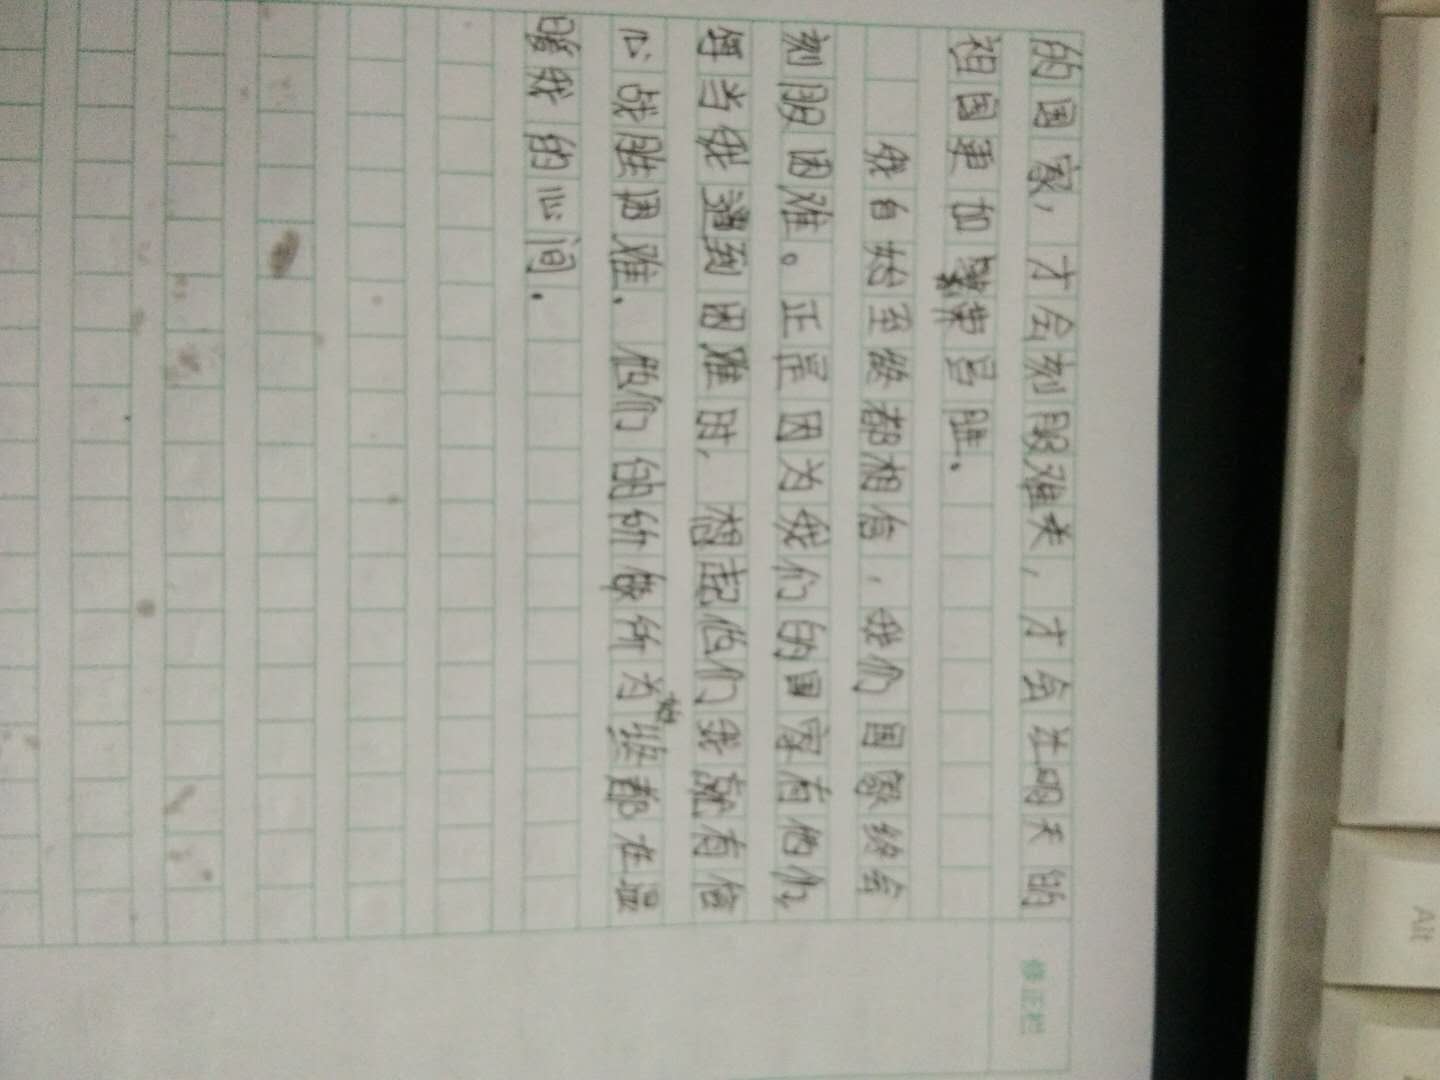 的国家,才会刻服难关,才会让明天的
祖国更加繁荣昌胜.
我自始至终都相信,我们国家终会
刻服困难。正是因为我们的国家有他们,
每当我遇到困难时,想起他们我就有信
心战胜困难.他们的所做所为始终都在温
暖我的心间.
修正栏
Alt